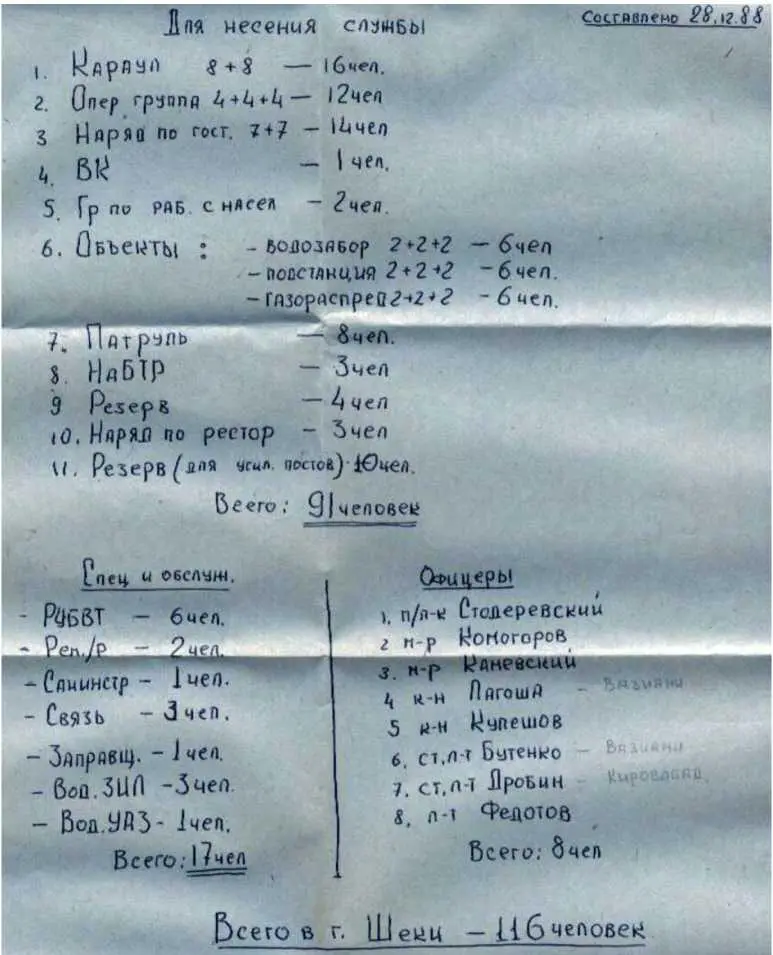 Для несения службы
Составлено 28.12.88
1. Караул 8+8 — 16 чел.
2. Опер группа 4+4+4 — 12 чел
3 Наряд по гост. 7+7 — 14 чел
4. ВК — 1 чел.
5. Гр по раб. с насел — 2 чел.
6. Объекты : - водозабор 2+2+2 — 6 чел
- подстанция 2+2+2 - 6 чел.
- газораспред 2+2+2 - 6 чел.
7. Патруль — 8 чел.
8. НаБТР — 3 чел
9 Резерв — 4 чел
10. Наряд по рестор — 3 чел
11. Резерв (для усил. постов) - 10 чел.
Всего: 91 человек
Спец и обслуж.
- РЦБВТ — 6 чел.
- Рем./р — 2 чел.
- Санинстр — 1 чел.
- Связь — 3 чел.
- Заправщ. — 1 чел.
- Вод. ЗИЛ - 3 чел.
- Вод. УАЗ - 1 чел.
Всего: 17 чел
Офицеры
1. п/п-к Стодеревский
2 м-р Комогоров
3. м-р Каневский
4 к-н Лагоша - Вазиани
5 к-н Кулешов
6. ст. л-т Бутенко - Вазиани
7. ст. л-т Дробин - Кировабад
8. л-т Федотов
Всего: 8 чел
Всего в г. Шеки — 116 человек